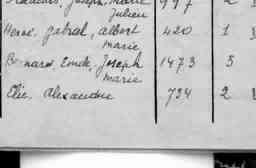 Joseph, Marie 997 2
Julien
Hervé, Gabriel, Albert 420 1
Marie
Bernard, Emile, Joseph 1473 3
Marie
Elie, Alexandre 734 2